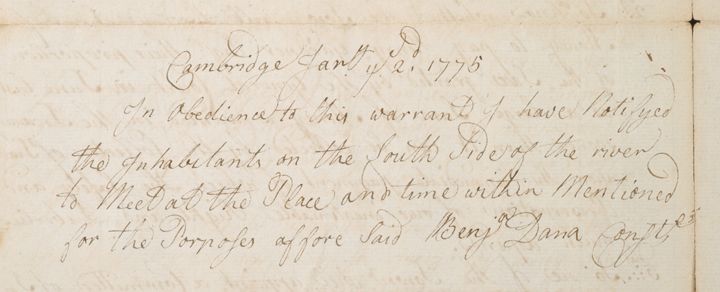 Cambridge Janry ye 2d. 1775
In Obedience to this warrant I have Notifyed
the Inhabitants on the South Side of the river
to Meet at the Place and time within Mentioned
for the Porposes affore Said Benja Dana Constle